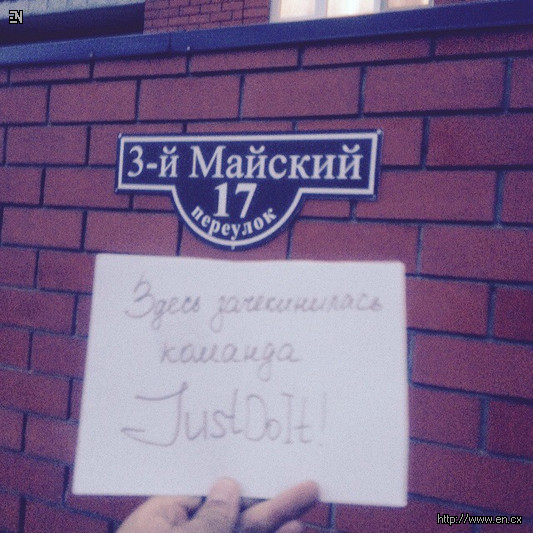 EN
3-й Майский
17
переулок
Здесь зачекинилась
команда
JustDoIt!
http://www.en.cx